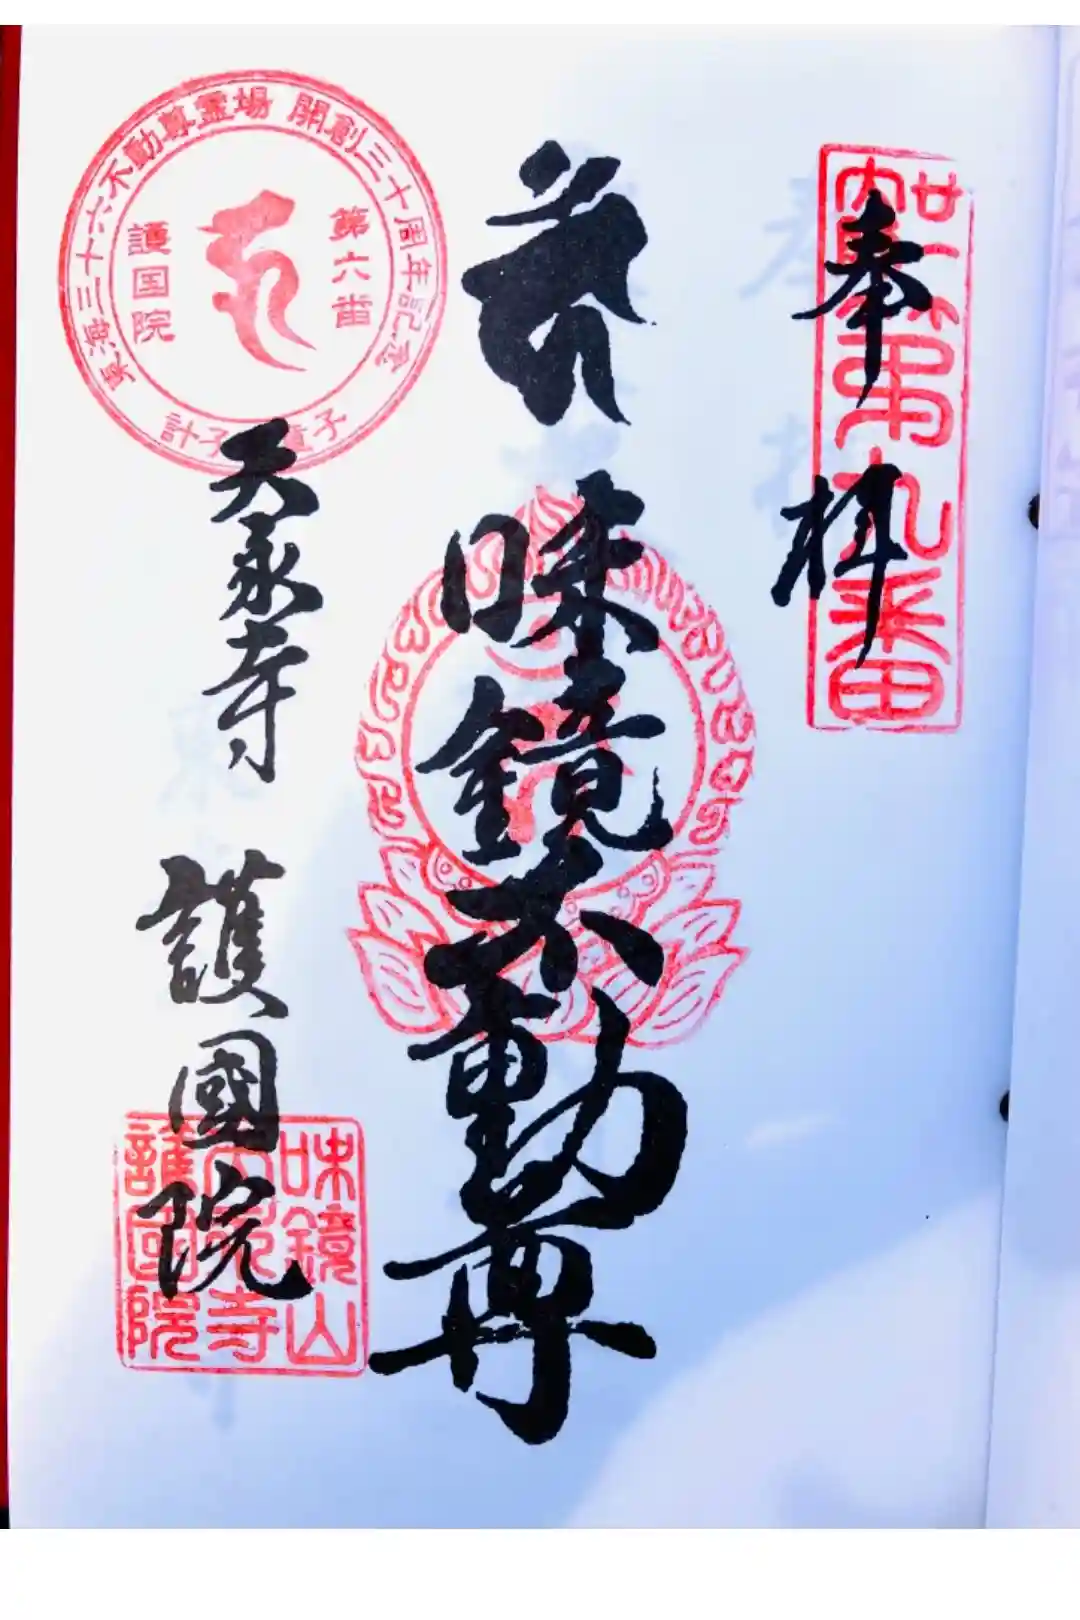 奉拝
味鏡不動尊
天永寺 護國院
東海三十六不動尊霊場 開創三十周年記念
第六番
護国院
味鏡山
天永寺
護國院